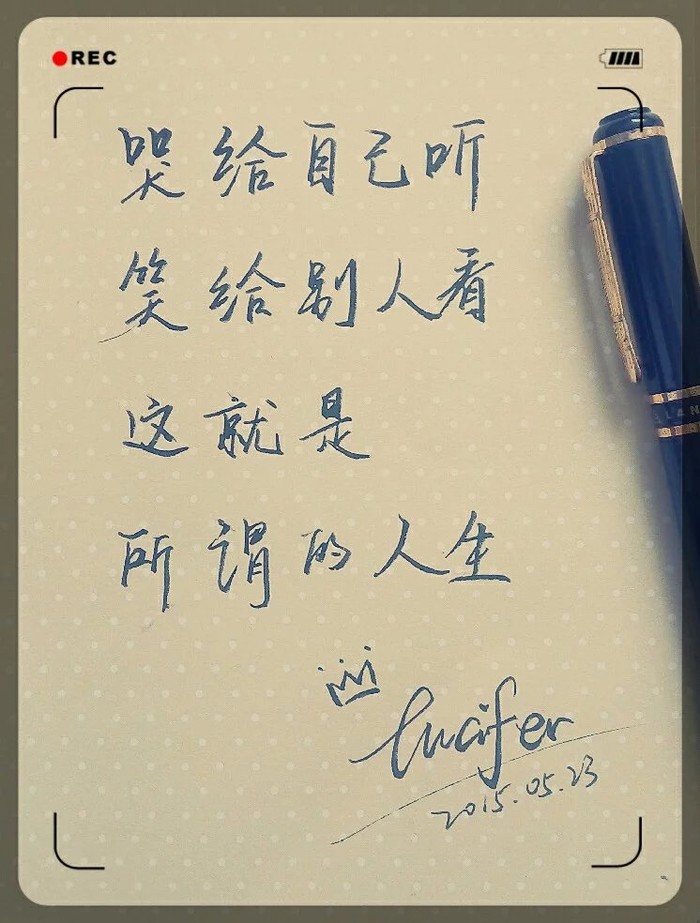 REC
哭给自己听
笑给别人看
这就是
所谓的人生
lucifer
2015.05.23